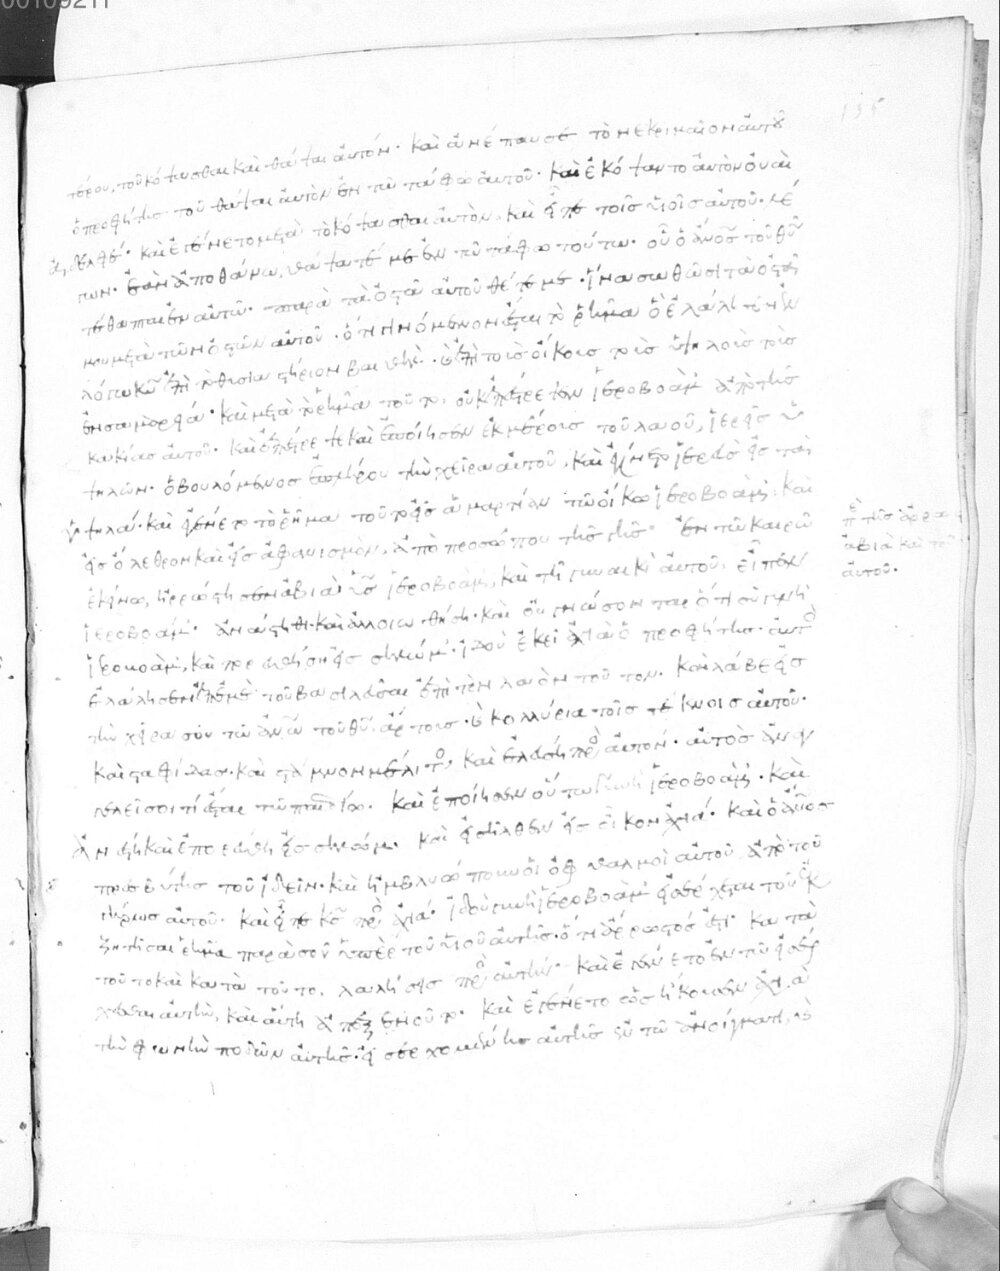 00109211
135
τέρου, τοῦ κόψασθαι καὶ θάψαι αὐτόν. καὶ ἀνέπαυσε τὸ νεκριμαῖον αὐτοῦ
ὁ προφήτης τοῦ θάψαι αὐτὸν ἐν τῷ τάφῳ αὐτοῦ. καὶ ἐκόψαντο αὐτὸν οὐαὶ
ἀδελφέ. καὶ ἐγένετο μετὰ τὸ κόψασθαι αὐτὸν, καὶ εἶπε τοῖς υἱοῖς αὐτοῦ λέ
γων. ἐὰν ἀποθάνω, θάψατέ με ἐν τῷ τάφῳ τούτῳ. οὗ ὁ ἄνος τοῦ θυ
τέθαπται ἐν αὐτῷ. παρὰ τὰ ὀστᾶ αὐτοῦ θέτε με. ἵνα σωθῶσι τὰ ὀστᾶ
μου μετὰ τῶν ὀστῶν αὐτοῦ. ὅτι γινόμενον ἔσται τὸ ῥῆμα ὃ ἐλάλησεν ἐν
λόγῳ κυ ἐπὶ τὸ θυσιαστήριον βαιθήλ. καὶ ἐπὶ τοὺς οἴκους τοὺς ὑψηλοὺς τοὺς
ἐν σαμαρεία. καὶ μετὰ τὸ ῥῆμα τοῦτο, οὐκ ἐπέστρεψεν ἱεροβοὰμ ἀπὸ τῆς
κακίας αὐτοῦ. καὶ ἐπέστρεψε καὶ ἐποίησεν ἐκ μέρους τοῦ λαοῦ, ἱερεῖς ὑ
ψηλῶν. ὁ βουλόμενος ἐπλήρου τὴν χεῖρα αὐτοῦ, καὶ ἐγένετο ἱερεὺς εἰς τὰ
ὑψηλά. καὶ ἐγένετο τὸ ῥῆμα τοῦτο εἰς ἁμαρτίαν τῷ οἴκῳ ἱεροβοὰμ. καὶ
εἰς ὄλεθρον καὶ εἰς ἀφανισμὸν, ἀπὸ προσώπου τῆς γῆς. ἐν τῷ καιρῷ
ἐκείνῳ, ἠρρώστησεν ἀβιὰ υς ἱεροβοὰμ, καὶ τῇ γυναικὶ αὐτοῦ. εἶπεν
ἱεροβοὰμ. ἀνάστηθι καὶ ἀλλοιωθήση. καὶ οὐ γνώσονται ὅτι σὺ γυνὴ
ἱεροβοὰμ, καὶ πορευθήση εἰς σηλώμ. ἰδοὺ ἐκεῖ ἀχιὰ ὁ προφήτης. αὐτὸς
ἐλάλησεν ἐπ' ἐμὲ τοῦ βασιλεῦσαι ἐπὶ τὸν λαὸν τοῦτον. καὶ λάβε εἰς
τὴν χεῖρά σου τῷ ἀνω τοῦ θυ. ἄρτους. καὶ κολλύρια τοῖς τέκνοις αὐτοῦ.
καὶ σταφίδας. καὶ στάμνον μέλιτος, καὶ ἐλεύση πρὸς αὐτόν. αὐτὸς ἀναγ
γελεῖ σοι τί ἔσται τῷ παιδίῳ. καὶ ἐποίησεν οὕτω γυνὴ ἱεροβοὰμ. καὶ
ἀνέστη καὶ ἐπορεύθη εἰς σηλώμ. καὶ εἰσῆλθεν εἰς οἶκον ἀχιά. καὶ ὁ ἄνος
πρεσβύτης τοῦ ἰδεῖν. καὶ ἠμβλυώπουν οἱ ὀφθαλμοὶ αὐτοῦ ἀπὸ τοῦ
γήρως αὐτοῦ. καὶ εἶπε κς πρὸς ἀχιά. ἰδοὺ γυνὴ ἱεροβοὰμ εἰσέρχεται τοῦ ἐκ
ζητῆσαι ῥῆμα παρὰ σοῦ ὑπὲρ τοῦ υἱοῦ αὐτῆς. ὅτι ἄρρωστός ἐστι. κατὰ
τοῦτο καὶ κατὰ τοῦτο, λαλήσεις πρὸς αὐτήν. καὶ ἐγένετο ἐν τῷ εἰσέρ
χεσθαι αὐτὴν, καὶ αὐτὴ ἀπεξενοῦτο. καὶ ἐγένετο ὡς ἤκουσεν ἀχιὰ
τὴν φωνὴν ποδῶν αὐτῆς. εἰσερχομένης αὐτῆς ἐν τῷ ἀνοίγματι, καὶ
αὐτοῦ.